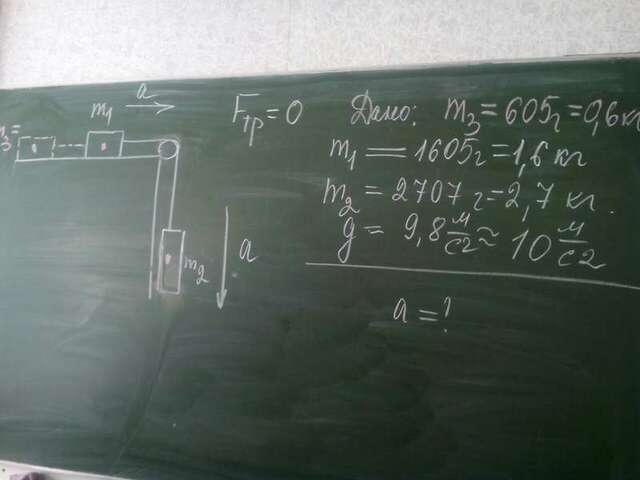 a
m₁
m₃=
m₂
a
Fтр = 0
Дано: m₃ = 605г = 0,6кг
m₁ = 1605г = 1,6 кг
m₂ = 2707 г = 2,7 кг.
g = 9,8 м/с2 ≈ 10 м/с2
a = ?